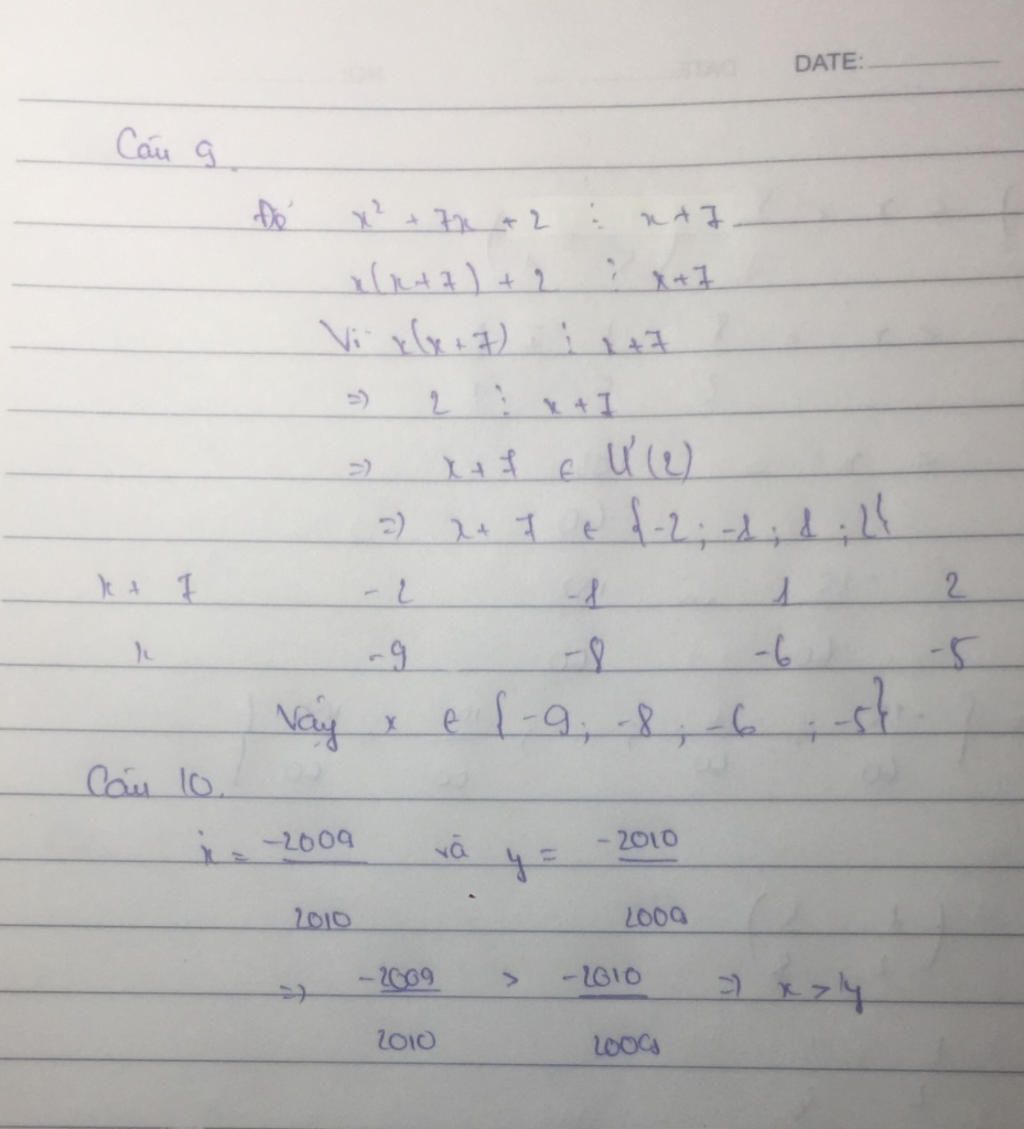 DATE:
Câu 9.
Để x² + 7x + 2 ⋮ x + 7
x(x+7) + 2 ⋮ x+7
Vì x(x+7) ⋮ x+7
=> 2 ⋮ x+7
=> x+7 ∈ Ư(2)
=> x+7 ∈ {-2; -1; 1; 2}
x + 7 -2 -1 1 2
x -9 -8 -6 -5
Vậy x ∈ {-9; -8; -6; -5}
Câu 10.
x = -2009/2010 và y = -2010/2009
=> -2009/2010 > -2010/2009 => x > y